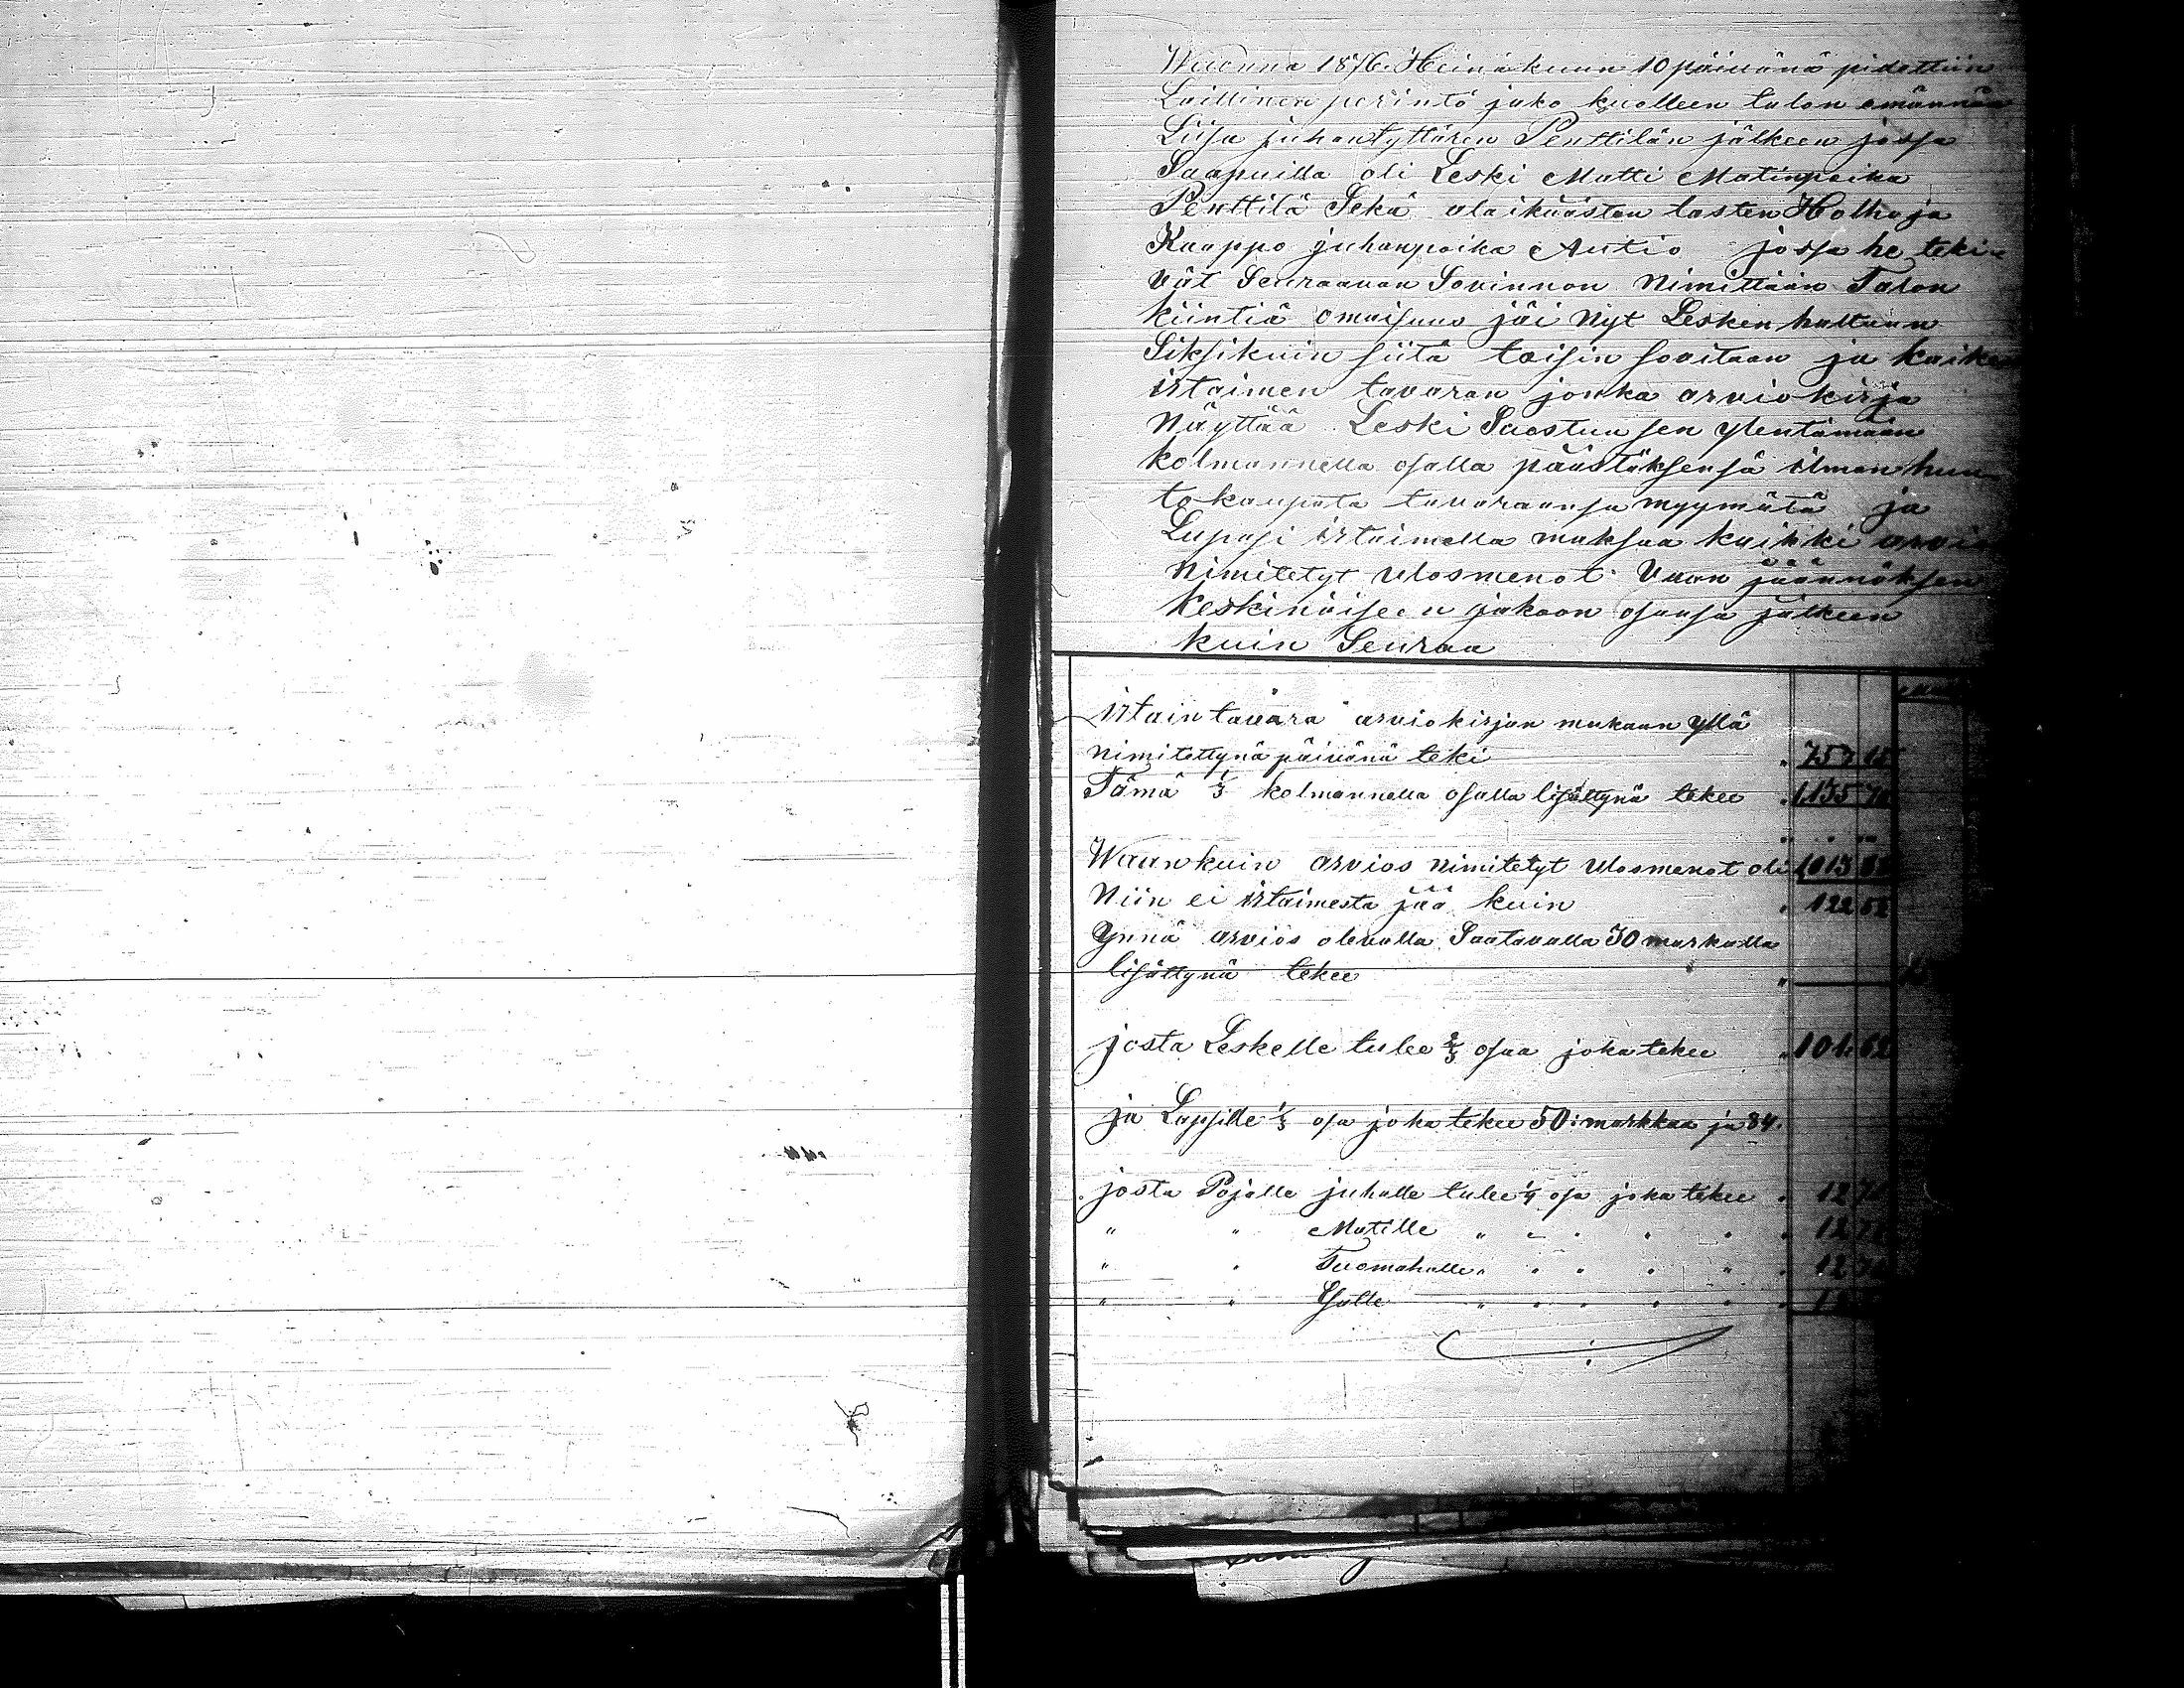 Wuonna 1876 Heinäkuun 10 päivänä pidettiin
Laillinen perintö jako kuolleen talon emännän
Liisa juhantyttären Penttilän jälkeen jossa
Saapuilla oli Leski Matti Matinpoika
Penttilä Sekä alaikäästen lasten Holhoja
Kaappo juhanpoika Autio jossa he teki-
vät Seuraavan Sovinnon Nimittäin Talon
kiintiä omaisuus jäi Nyt Lesken haltuun
Siksikuin siitä toisin sovitaan ja kaiken
irtaimen tavaran jonka arviokirja
Näyttää Leski Suostuu sen ylentämään
kolmannella osalla päästäksensä ilman huu-
tokaupata tavaraansa myymätä ja
Lupasi irtaimella maksaa kaikki arvios
Nimitetyt Ulosmenot Vaan jäännöksen
Keskinäiseen jakoon osansa jälkeen
kuin Seuraa
irtain tavara arviokirjan mukaan yllä
Nimitettynä päivänä teki " 757 15
Tämä 1/3 kolmannella osalla lisättynä tekee " 1,135 70
Waan kuin arvios Nimitetyt Ulosmenot oli 1013
Niin ei irtaimesta jää kuin " 122 52
Ynnä arvios olevalla Saatavalla 30 markalla
lisättynä tekee "
josta Leskelle tulee 2/3 osaa joka tekee " 101: 68
ja Lapsille 1/3 osa joka tekee 50: markkaa ja 84.
josta Pojalle juhalle tulee 1/4 osa joka tekee " 12 71
" " Matille " " " " " " 12 71
" " Tuomahalle " " " " " " 12 71
" " Esalle " " " " " " 12